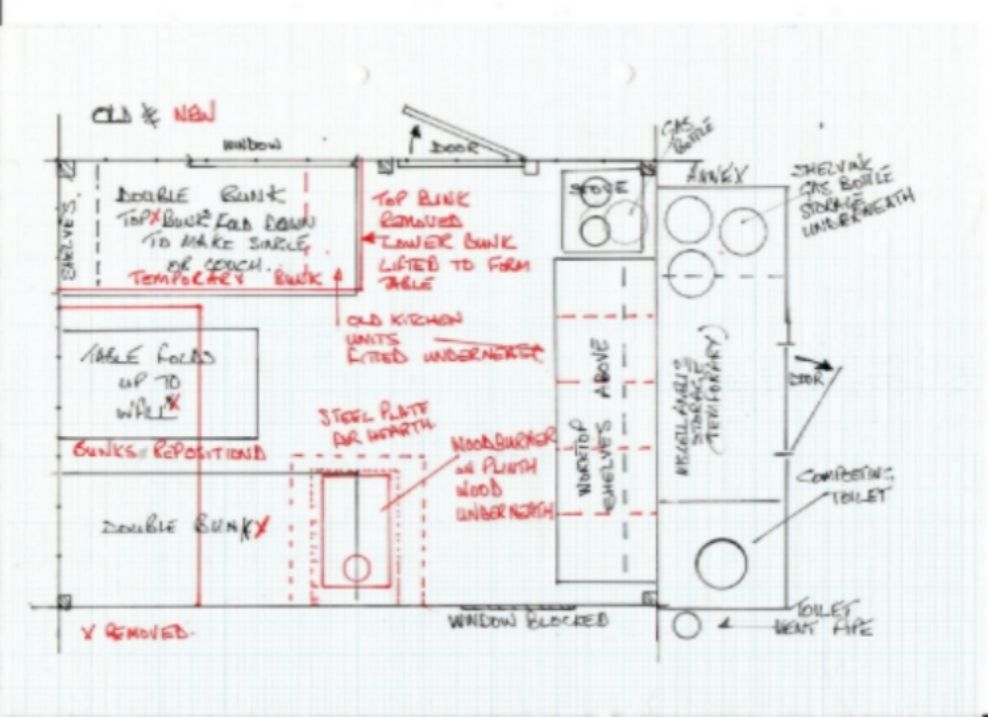 OLD & NEW
WINDOW
DOOR
GAS
BOTTLE
ANNEX
SHELVING
GAS BOTTLE
STORAGE
UNDERNEATH
SHELVES.
DOUBLE BUNK
TOP X BUNK FOLD DOWN
TO MAKE SINGLE
OR COUCH.
TEMPORARY BUNK
TOP BUNK
REMOVED
LOWER BUNK
LIFTED TO FORM
TABLE
STOVE
OLD KITCHEN
UNITS
FITTED UNDERNEATH
TABLE FOLDS
UP TO
WALL X
BUNKS REPOSITIOND
STEEL PLATE
AIR HEARTH
WOODBURNER
ON PLINTH
WOOD
UNDERNEATH
WORKTOP
SHELVES ABOVE
STORAGE
(TEMPORARY)
DOOR
DOUBLE BUNK X
TOILET
X REMOVED.
WINDOW BLOCKED
TOILET
VENT PIPE